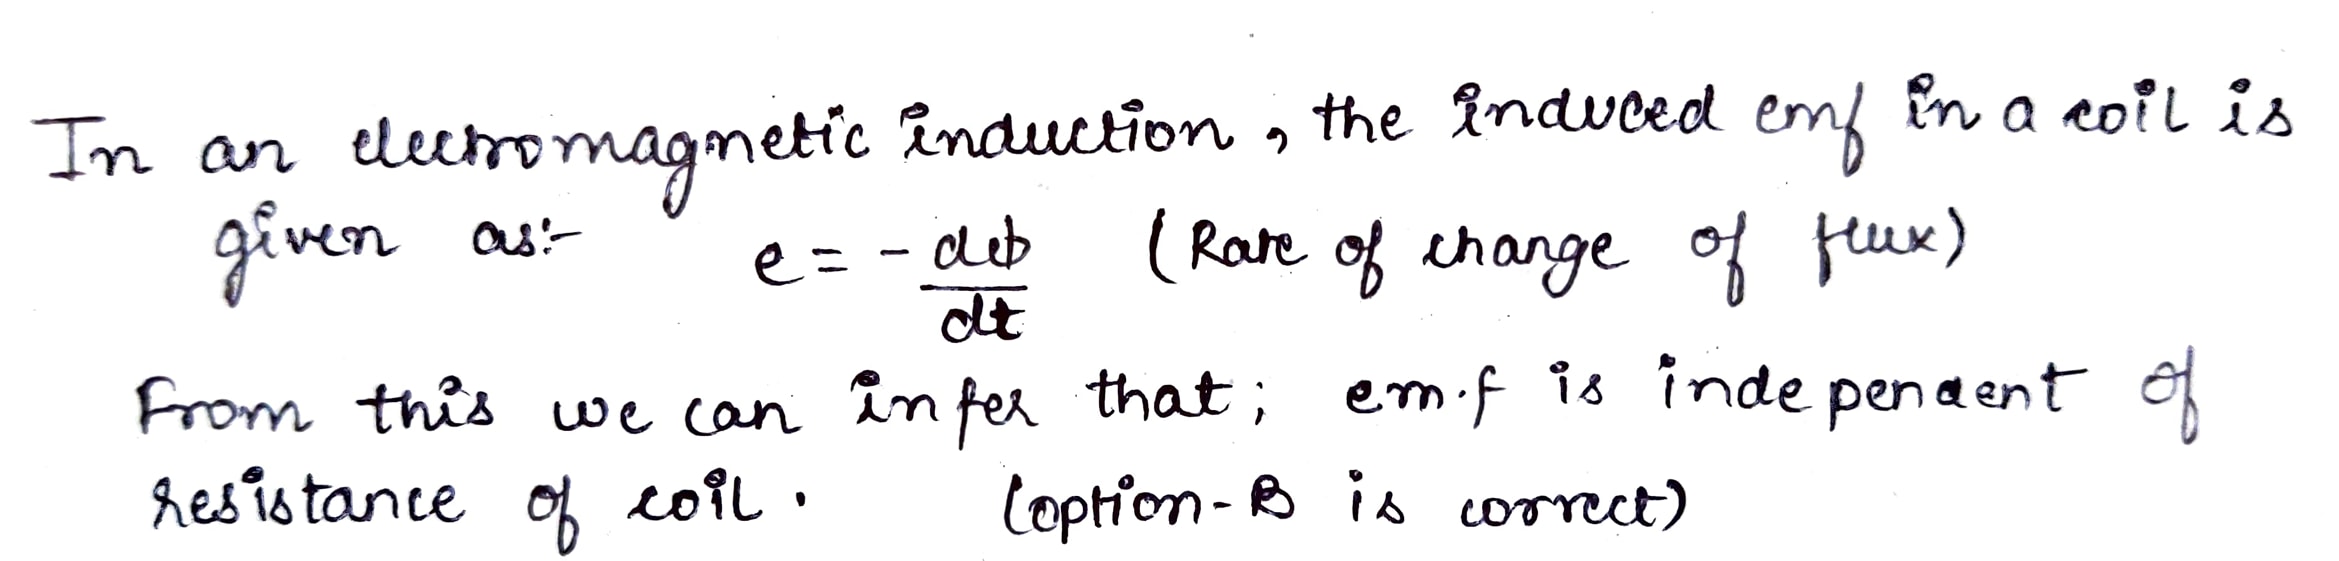 In an electromagnetic induction, the induced emf in a coil is
given as:- e = - dϕ/dt (Rate of change of flux)
From this we can infer that; em.f is independent of
resistance of coil. (option-B is correct)